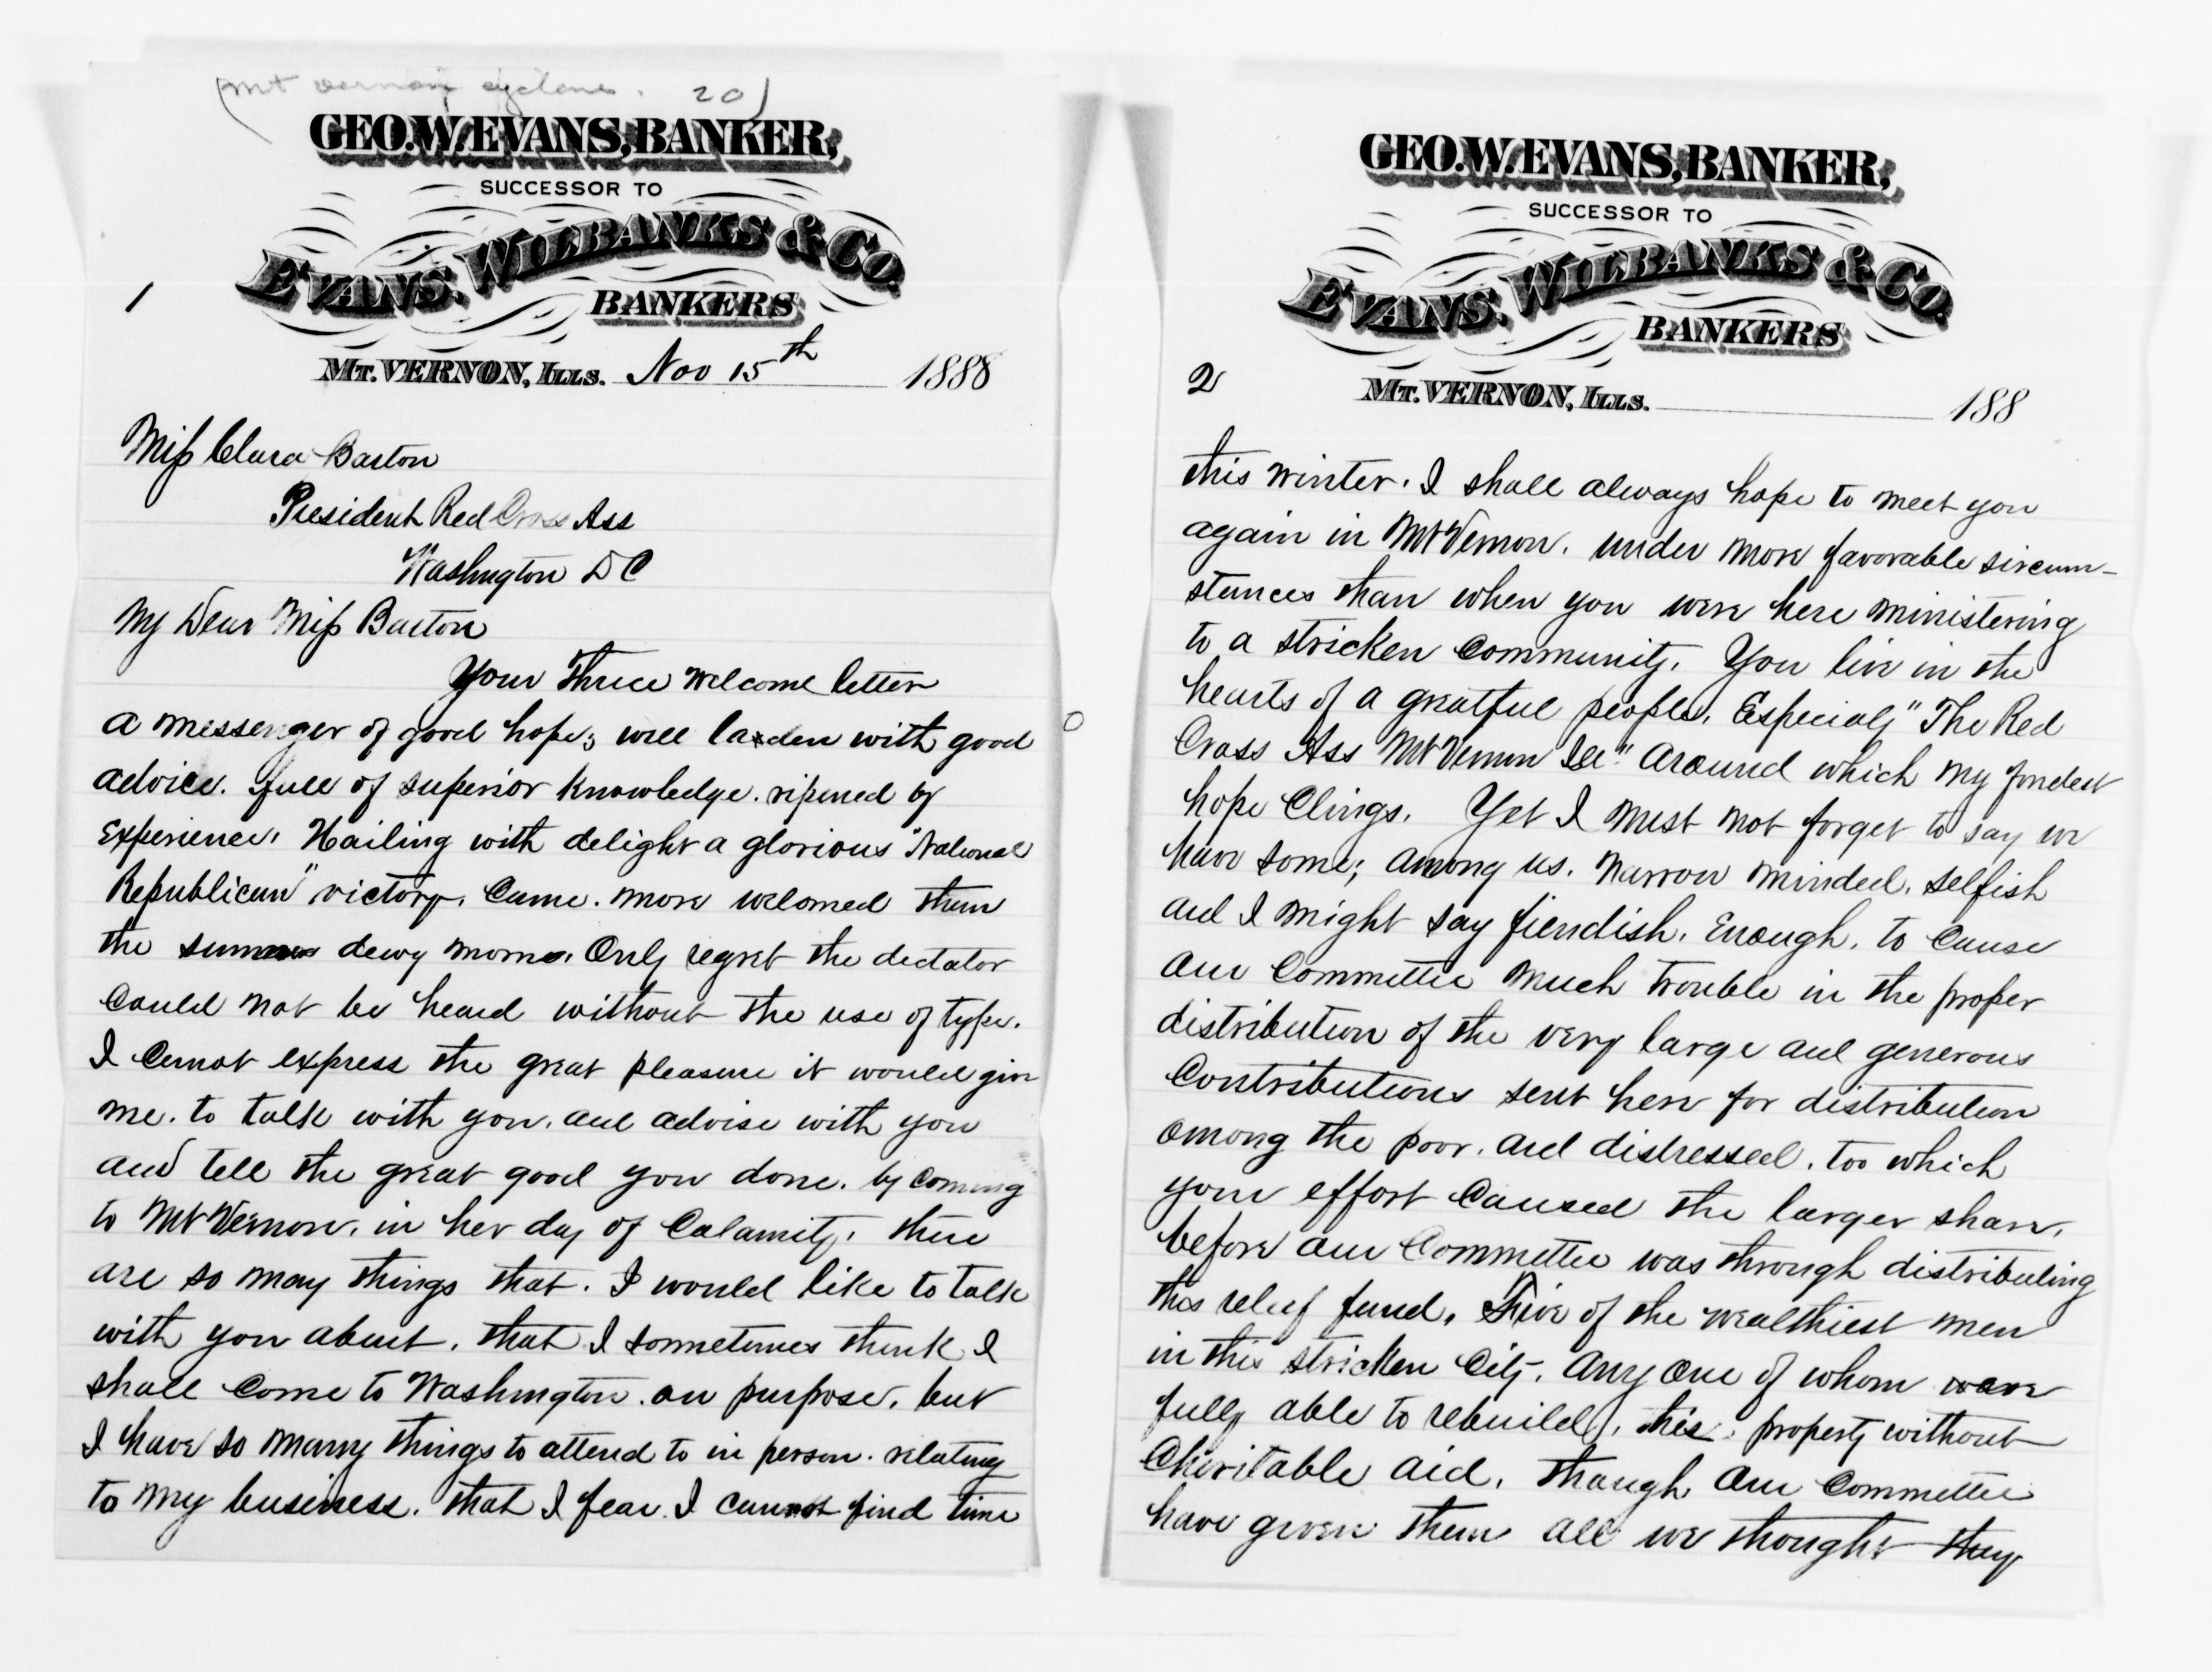 (Mt Vernon cyclone. 20)
GEO. W. EVANS, BANKER,
SUCCESSOR TO
EVANS, WILBANKS & CO.
BANKERS
1
MT. VERNON, ILLS. Nov 15th 1888
Miss Clara Barton
President Red Cross Ass
Washington D C
My Dear Miss Barton
Your Thrice welcome letter
a messenger of good hope; well laxden with good
advice. full of superior knowledge. ripened by
Experience. Hailing with delight a glorious "National
Republican" victory. Came. more welomed than
the summers dewy morns. Only regret the dectator
could not be heard without the use of type.
I cannot express the great pleasure it would give
me. to talk with you. and advise with you
and tell the great good you done. by coming
to Mt Vernon. in her day of Calamity. there
are so may things that. I would like to talk
with you about. that I sometimes think I
shall come to Washington. on purpose. but
I have so many things to attend to in person. relating
to my business. that I fear. I cannot find time
GEO. W. EVANS, BANKER,
SUCCESSOR TO
EVANS, WILBANKS & CO.
BANKERS
2
MT. VERNON, ILLS. 188
this winter. I shall always hope to meet you
again in Mt Vernon. under more favorable sircum-
stances than when you were here ministering
to a stricken community. You live in the
hearts of a greatful people. Especialy "The Red
Cross Ass Mt Vernon Ill" around which my fondest
hope clings. Yet I must not forget to say we
have some; among us. narrow minded. selfish
and I might say fiendish. Enough. to cause
our Committee much trouble in the proper
distribution of the very large and generous
Contributions sent here for distribution
among the poor. and distressed. too which
your effort caused the larger share.
before our Committee was through distributing
this relief fund. Five of the wealthiest men
in this stricken City. any one of whom ware
fully able to rebuild. this. property without
Charitable aid. though our Committee
have given them all we thought they